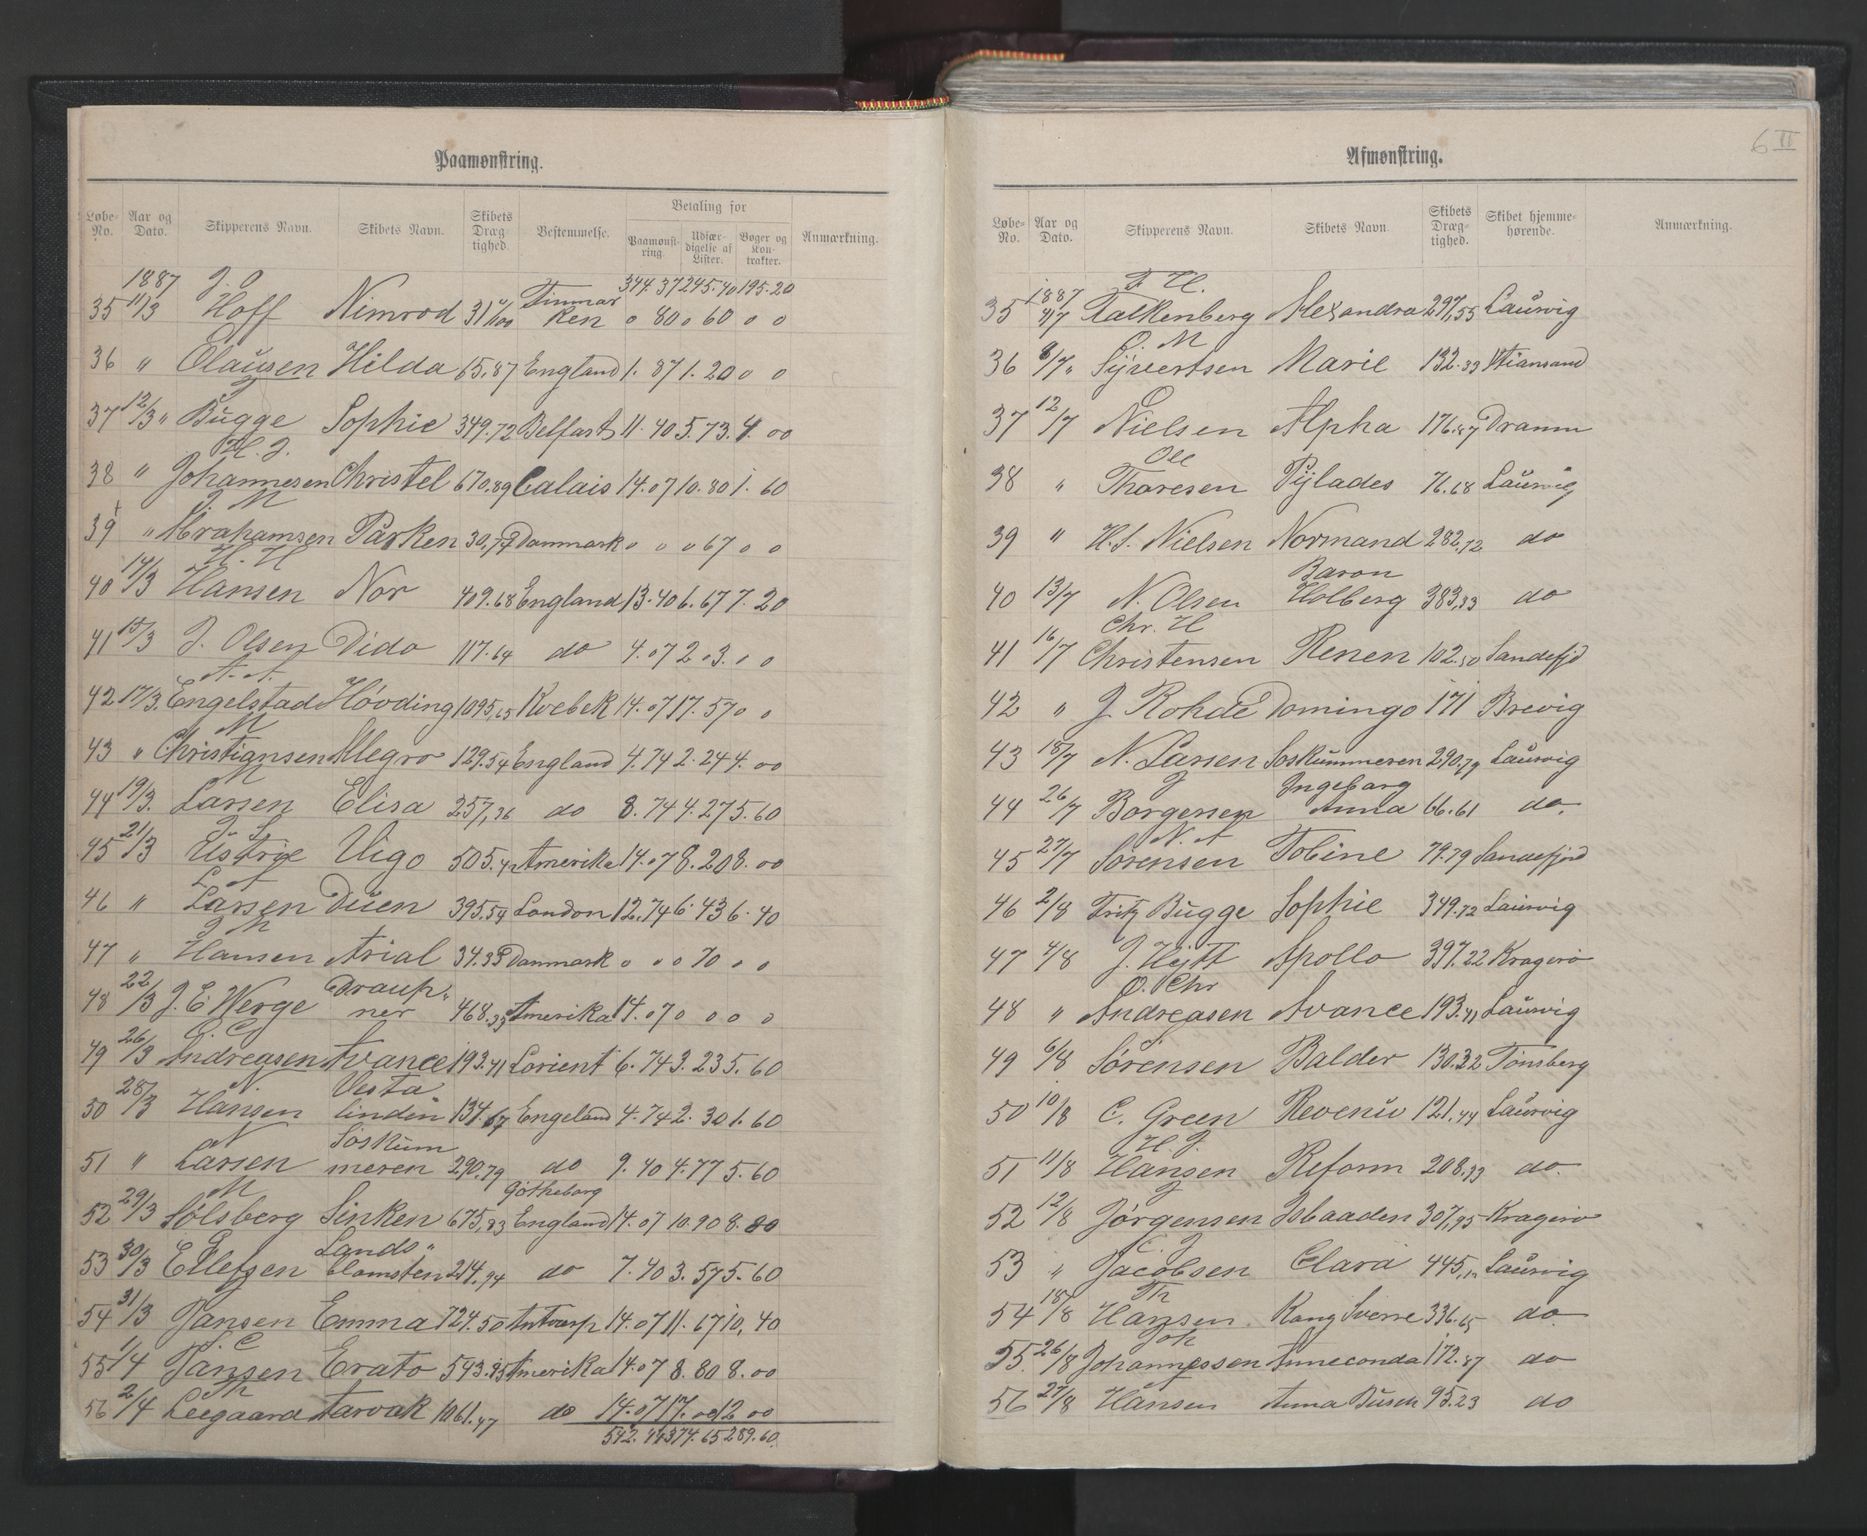 Paamønstring.
Løbe-No. Aar og Dato. Skipperens Navn. Skibets Navn. Skibets Dræg-tighed. Bestemmelse. Betaling for Paamønst-ring. Udfær-digelse af Lister. Bøger og Kon-trakter. Anmærkning.
1887 344.37 245.40 195.20
35 11/3 Hoff Nimrod 31 Finmarken 0 80 0 60 0 0
36 " Olausen Hilda 65.87 England 1.87 1.20 0 0
37 12/3 " Bugge Sophie 349.72 Belfast 11.40 5.73 4.00
38 " H. J. Johannesen Christel 670.89 Calais 14.07 10.80 1.60
39 " J. M Abrahamsen Parken 30,77 Danmark 0 0 0 67 0 0
40 14/3 H. H Hansen Nor 409.68 England 13.40 6.67 7.20
41 15/3 J. Olsen Dido 117.64 do 4.07 2.03 0 0
42 17/3. A. A. Engelstad Høvding 1095,65 Kvebek 14.07 17.57 0 0
43 " M Christiansen Allegro 129.54 England 4.74 2.24 4.00
44 19/3. Larsen Elisa 257,36 do 8.74 4.27 5.60
45 21/3 Ustrige Vigo 505.42 Amerika 14.07 8.20 8.00
46 " Larsen Duen 395.54 London 12.74 6.43 6.40
47 " Hansen Arial 34.35 Danmark 0 0 0 70 0 0
48 22/3 J. E. Werge Draupner 468.35 Amerika 14.07 0 0 0 0
49 26/3 O. C. Andreasen Avance 193.41 Lorient 6.74 3.23 5.60
50 28/3 N. Hansen Vestalinden 134.67 Engeland 4.74 2.30 1.60
51 " N Larsen Soskummeren 290.79 do 9.40 4.77 5.60
52 29/3 M Sølsberg Sinken 675,83 Gøtheborg England 14.07 10.90 8.80
53 30/3 Ellefsen Landsblomsten 214.94 do 7.40 3.57 5.60
54 31/3 Jansen Emma 724.50 Antverp 14.07 11.67 10,40
55 1/4 Jansen Erato 543.95 Amerika 14.07 8.80 8.00
56 2/4 Th Leegaard Tarvak 1061.47 do 14.07 17.00 12 00
542.44 374.65 289.60
6 II
Afmønstring.
Løbe-No. Aar og Dato. Skipperens Navn. Skibets Navn Skibets Dræg-tighed. Skibet hjemme-hørende. Anmærkning.
35 1887 4/7 F. H. Falkenberg Alexandra 297,55 Laurvig
36 8/7 " O. M Syvertsen Marie 132.33 Xtiansand
37 12/7 Nielsen Alpha 176.87 Dramm
38 " Ole Thoresen Pylades 76.68 Laurvig
39 " H. S. Nielsen Normand 282,12 do
40 13/7 N. Olsen Baron Holberg 383,33 do
41 16/7 Chr. H Christensen Renen 102.50 Sandefjd
42 " J Rohde Domingo 171 Brevig
43 18/7 N. Larsen Soskummeren 290,79 Laurvig
44 26/7 J Borgersen Ingeborg Anna 66.61 do.
45 27/7 N. A Sørensen Tobine 79.79 Sandefjord
46 2/8 Fritz Bugge Sophie 349.72 Laurvig
47 4/8 J. Hejtt Apollo 397.22 Kragerø
48 " O. Chr Andreasen Avance 193.41 Laurvig
49 6/8 Sørensen Balder 130.32 Tønsberg
50 10/8 C. Green Revenu 121.44 Laurvig
51 11/8 H J. Hansen Reform 208.93 do.
52 12/8 J Jørgensen Isbaaden 307,95 Kragerø
53 " C. J Jacobsen Clara 445,12 Laurvig
54 18/8 Th Hansen Kong Sverre 336.65 do.
55. 26/8 Joh Johannessen Anneconda 172.87 do
56 27/8 Hansen Anna Busch 95.23 do